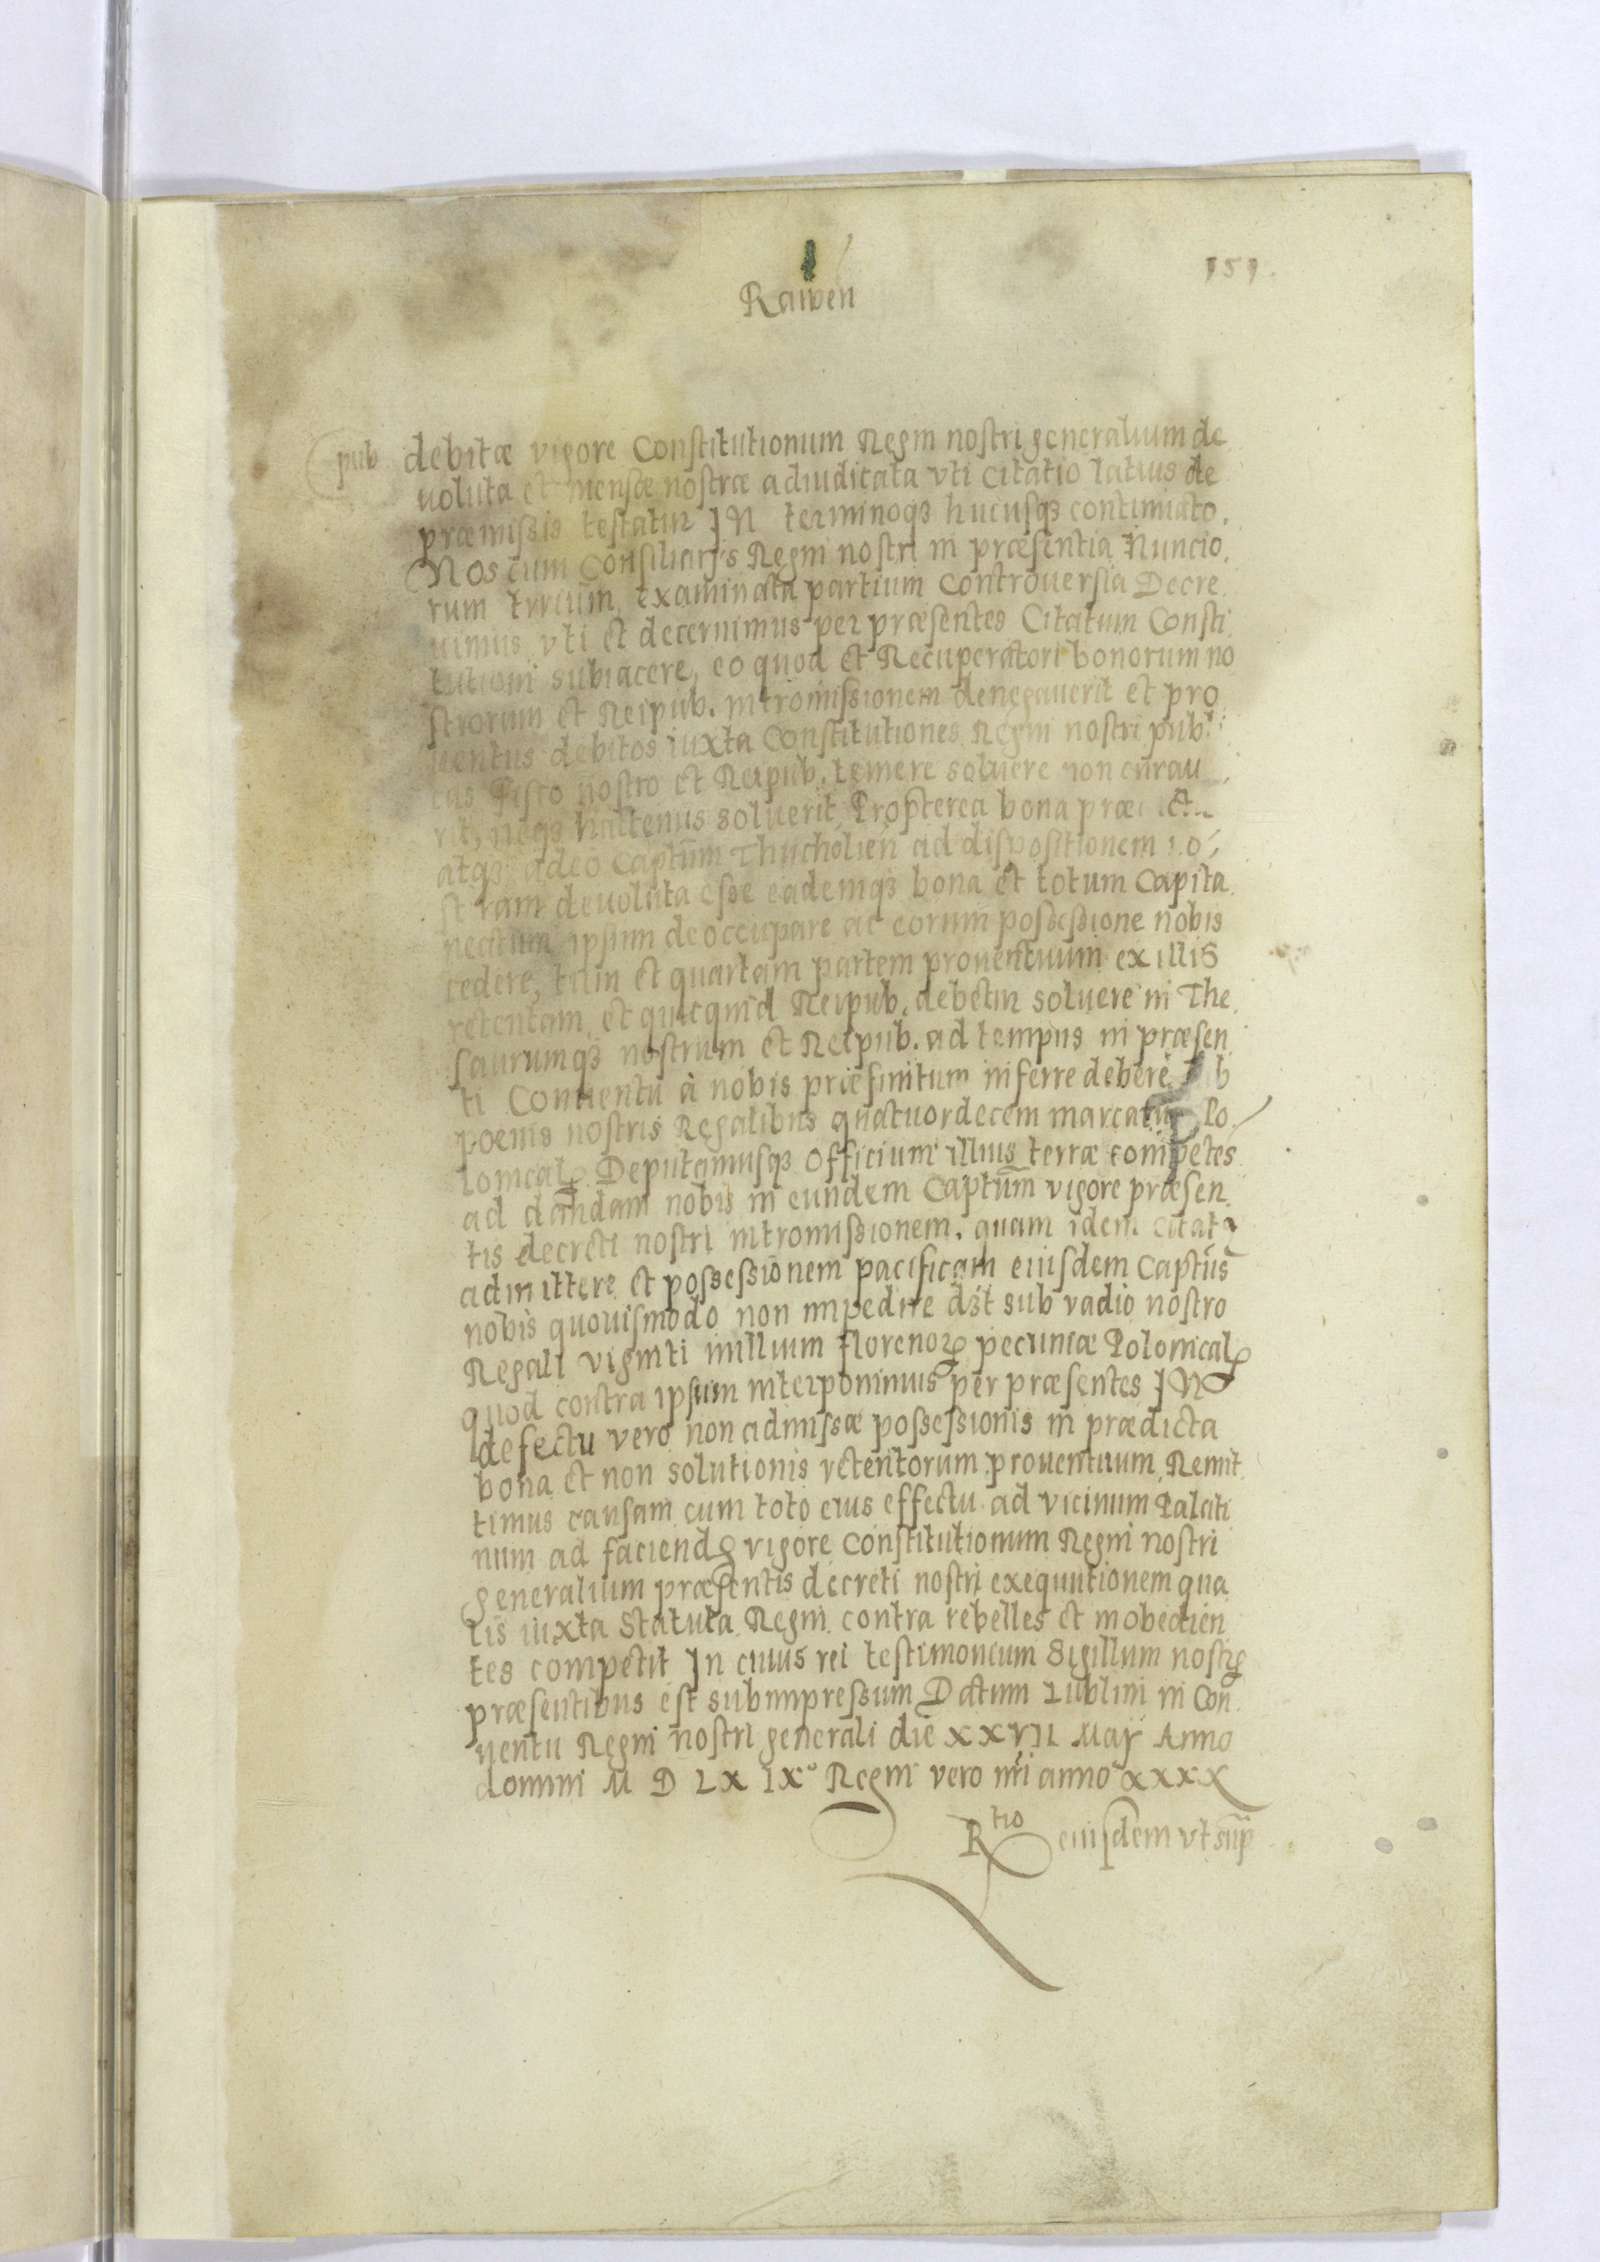 151.
Rawen
pub debitæ vigore Constitutionum Regni nostri generalium de
uoluta et mensæ nostræ adiudicata vti Citatio latius de
præmissis testatur IN terminoqȝ hucusqȝ continuato.
Nos cum Consiliarijs Regni nostri in præsentia Nuncio.
rum trrūm examinata partium Controuersia Decre
uimus vti et decernimus per præsentes Citatum Consti
tutioni subiacere, eo quod et Recuperatori bonorum no
strorum et Reipub. intromissionem denegauerit et pro
uentus debitos iuxta Constitutiones Regni nostri pub
cus Fisco nostro et Reipub. temere soluere non curau
rit, neqȝ hactenus soluerit, Propterea bona
atqȝ adeo Captūm Thucholien̄ ad dispositionem no
stram deuoluta esse eademqȝ bona et totum Capita
neatum ipsum deoccupare ac eorum possessione nobis
cedere, tum et quartam partem prouentuum ex illis
retentam et quicquid Reipub. debetur soluere in The
saurumqȝ nostrum et Reipub. ad tempus in præsen
ti Conuentu à nobis præfinitum inferre debere
poenis nostris Regalibus quatuordecem marcarꝝ Po
lonicalꝝ Deputamusqȝ officium illius terræ competēs
ad dandam nobis in eundem Captūm vigore præsen
tis decreti nostri intromissionem. quam idem citatꝰ
admittere et possessionem pacificam eiusdem Captūs
nobis quouismodo non impedire dȝt sub vadio nostro
Regali viginti millium florenorꝝ pecuniæ Polonicalꝝ
quod contra ipsum interponimus per præsentes IN
defectu vero non admissæ possessionis in prædicta
bona et non solutionis retentorum prouentuum Remit
timus causam cum toto eius effectu ad vicinum Palati
num ad faciendꝫ vigore Constitutionum Regni nostri
generalium præsentis decreti nostri exequutionem qua
lis iuxta Statuta Regni contra rebelles et inobedien
tes competit In cuius rei testimonium Sigillum nostrꝫ
præsentibus est subimpressum Datum Lublini in Con
uentu Regni nostri generali die XXVII Maij Anno
domini M D LX IX° Regni vero nr̄i anno XXXX
Rtio eiusdem vt sup̄